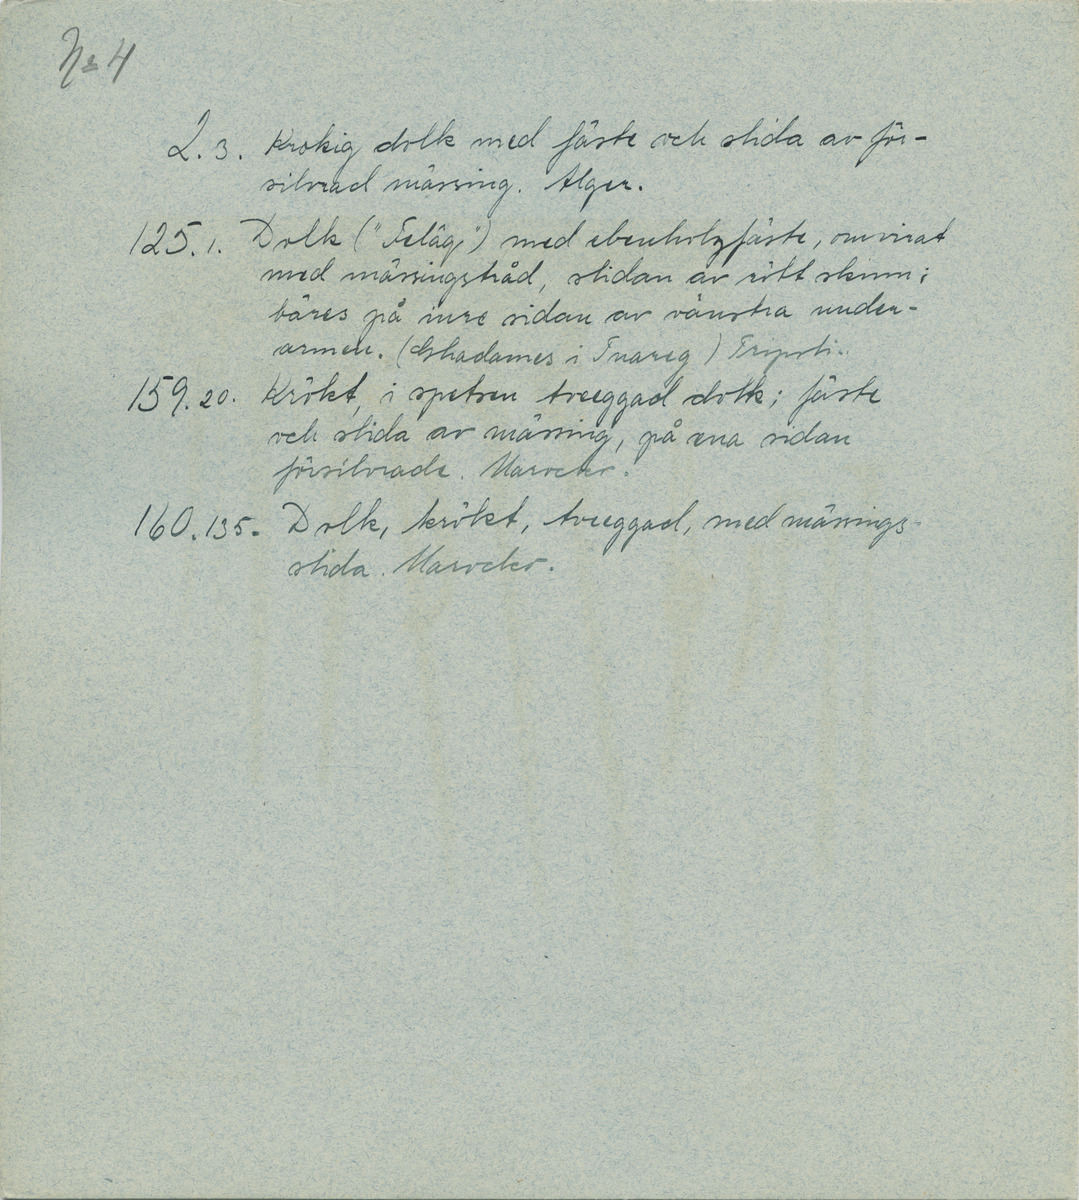 No 4
2.3. Krokig dolk med fäste och slida av för-
silvrad mässing. Alger.
125.1. Dolk ("Feläg") med ebenholzfäste, omvirat
med mässingstråd, slidan av rött skinn;
bäres på inre sidan av vänstra under-
armen. (Ghadames i Tuareg) Tripoli.
159.20. Krökt, i spetsen tveeggad dolk; fäste
och slida av mässing, på ena sidan
försilvrade. Marocko.
160.135. Dolk, krökt, tveeggad, med mässings-
slida. Marocko.